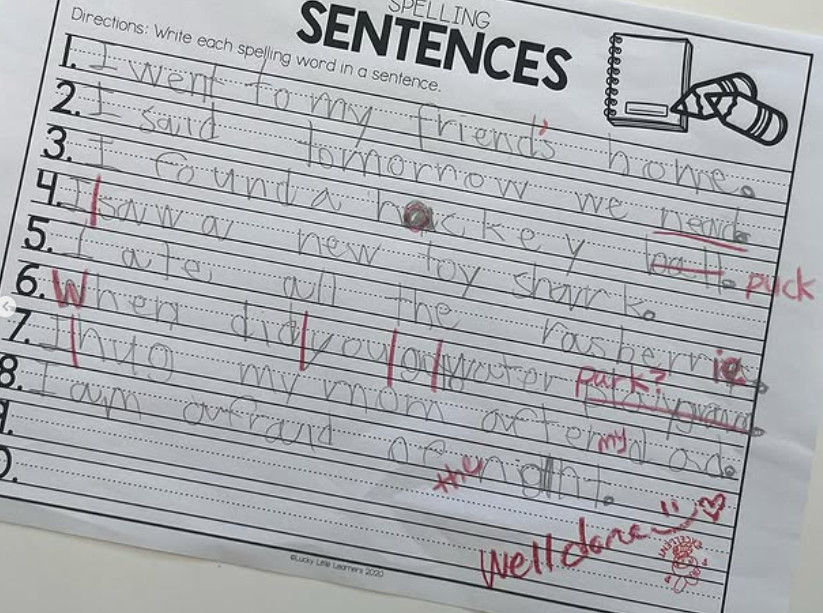 SPELLING
SENTENCES
Directions: Write each spelling word in a sentence.
1. I went to my friend's home.
2. I said tomorrow we need.
3. I found a hockey ball. puck
4. I saw a new toy shark.
5. I ate all the rasberrie
6. When did you go water playground. park?
7. I hug my mom after my dad.
8. I am afraid of the night.
9.
Well done
©Lucky Little Learners 2020